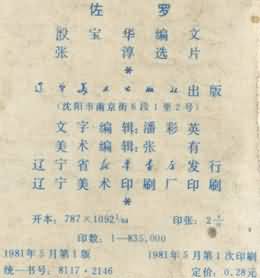 佐 罗
殷宝华编文
张淳选片
*
辽宁美术出版社出版
(沈阳市南京街6段1里2号)
文字编辑:潘彩英
美术编辑:张有
辽宁省新华书店发行
辽宁美术印刷厂印刷
*
开本:787×1092 1/64 印张:2
印数:1—835,000
1981年5月第1版 1981年5月第1次印刷
统一书号:8117·2146 定价:0.28元